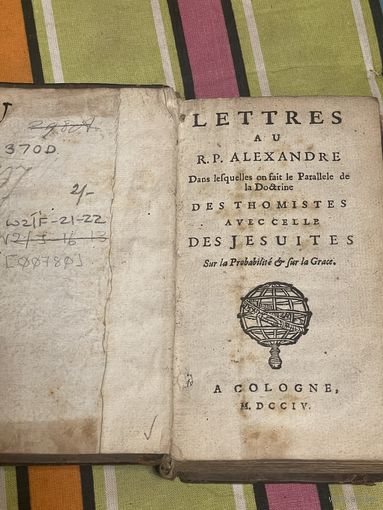 370D
2/-
W21F-21-22
[00780]
LETTRES
AU
R. P. ALEXANDRE
Dans lesquelles on fait le Parallele de
la Doctrine
DES THOMISTES
AVEC CELLE
DES JESUITES
Sur la Probabilité & sur la Grace.
A COLOGNE,
M. DCCIV.